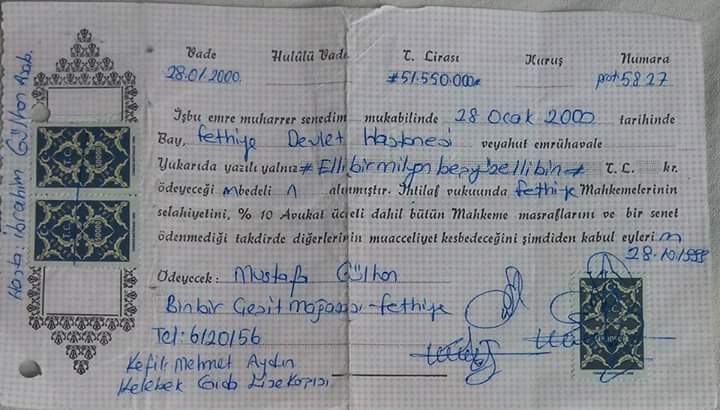 Vade Hulûlü Vade T. Lirası Kuruş Numara
28.01.2000. #51.550.000# prot:5827
İşbu emre muharrer senedim mukabilinde 28 Ocak 2000 tarihinde
Bay, Fethiye Devlet Hastanesi veyahut emrühavale
Yukarıda yazılı yalnız #Ellibirmilyon beşyüzellibin# T. L. kr.
ödeyeceğim bedeli alınmıştır. İhtilaf vukuunda Fethiye Mahkemelerinin
selahiyetini, % 10 Avukat ücreti dahil bütün Mahkeme masraflarını ve bir senet
ödenmediği takdirde diğerlerinin muacceliyet kesbedeceğini şimdiden kabul eylerim
28.10.1999
Ödeyecek: Mustafa Gülhan
Binbir Çeşit Mağazası-Fethiye
Tel: 6120156
Kefil: Mehmet Aydın
Kelebek Gıda Lise Kapısı
Hasta: İbrahim Gülhan